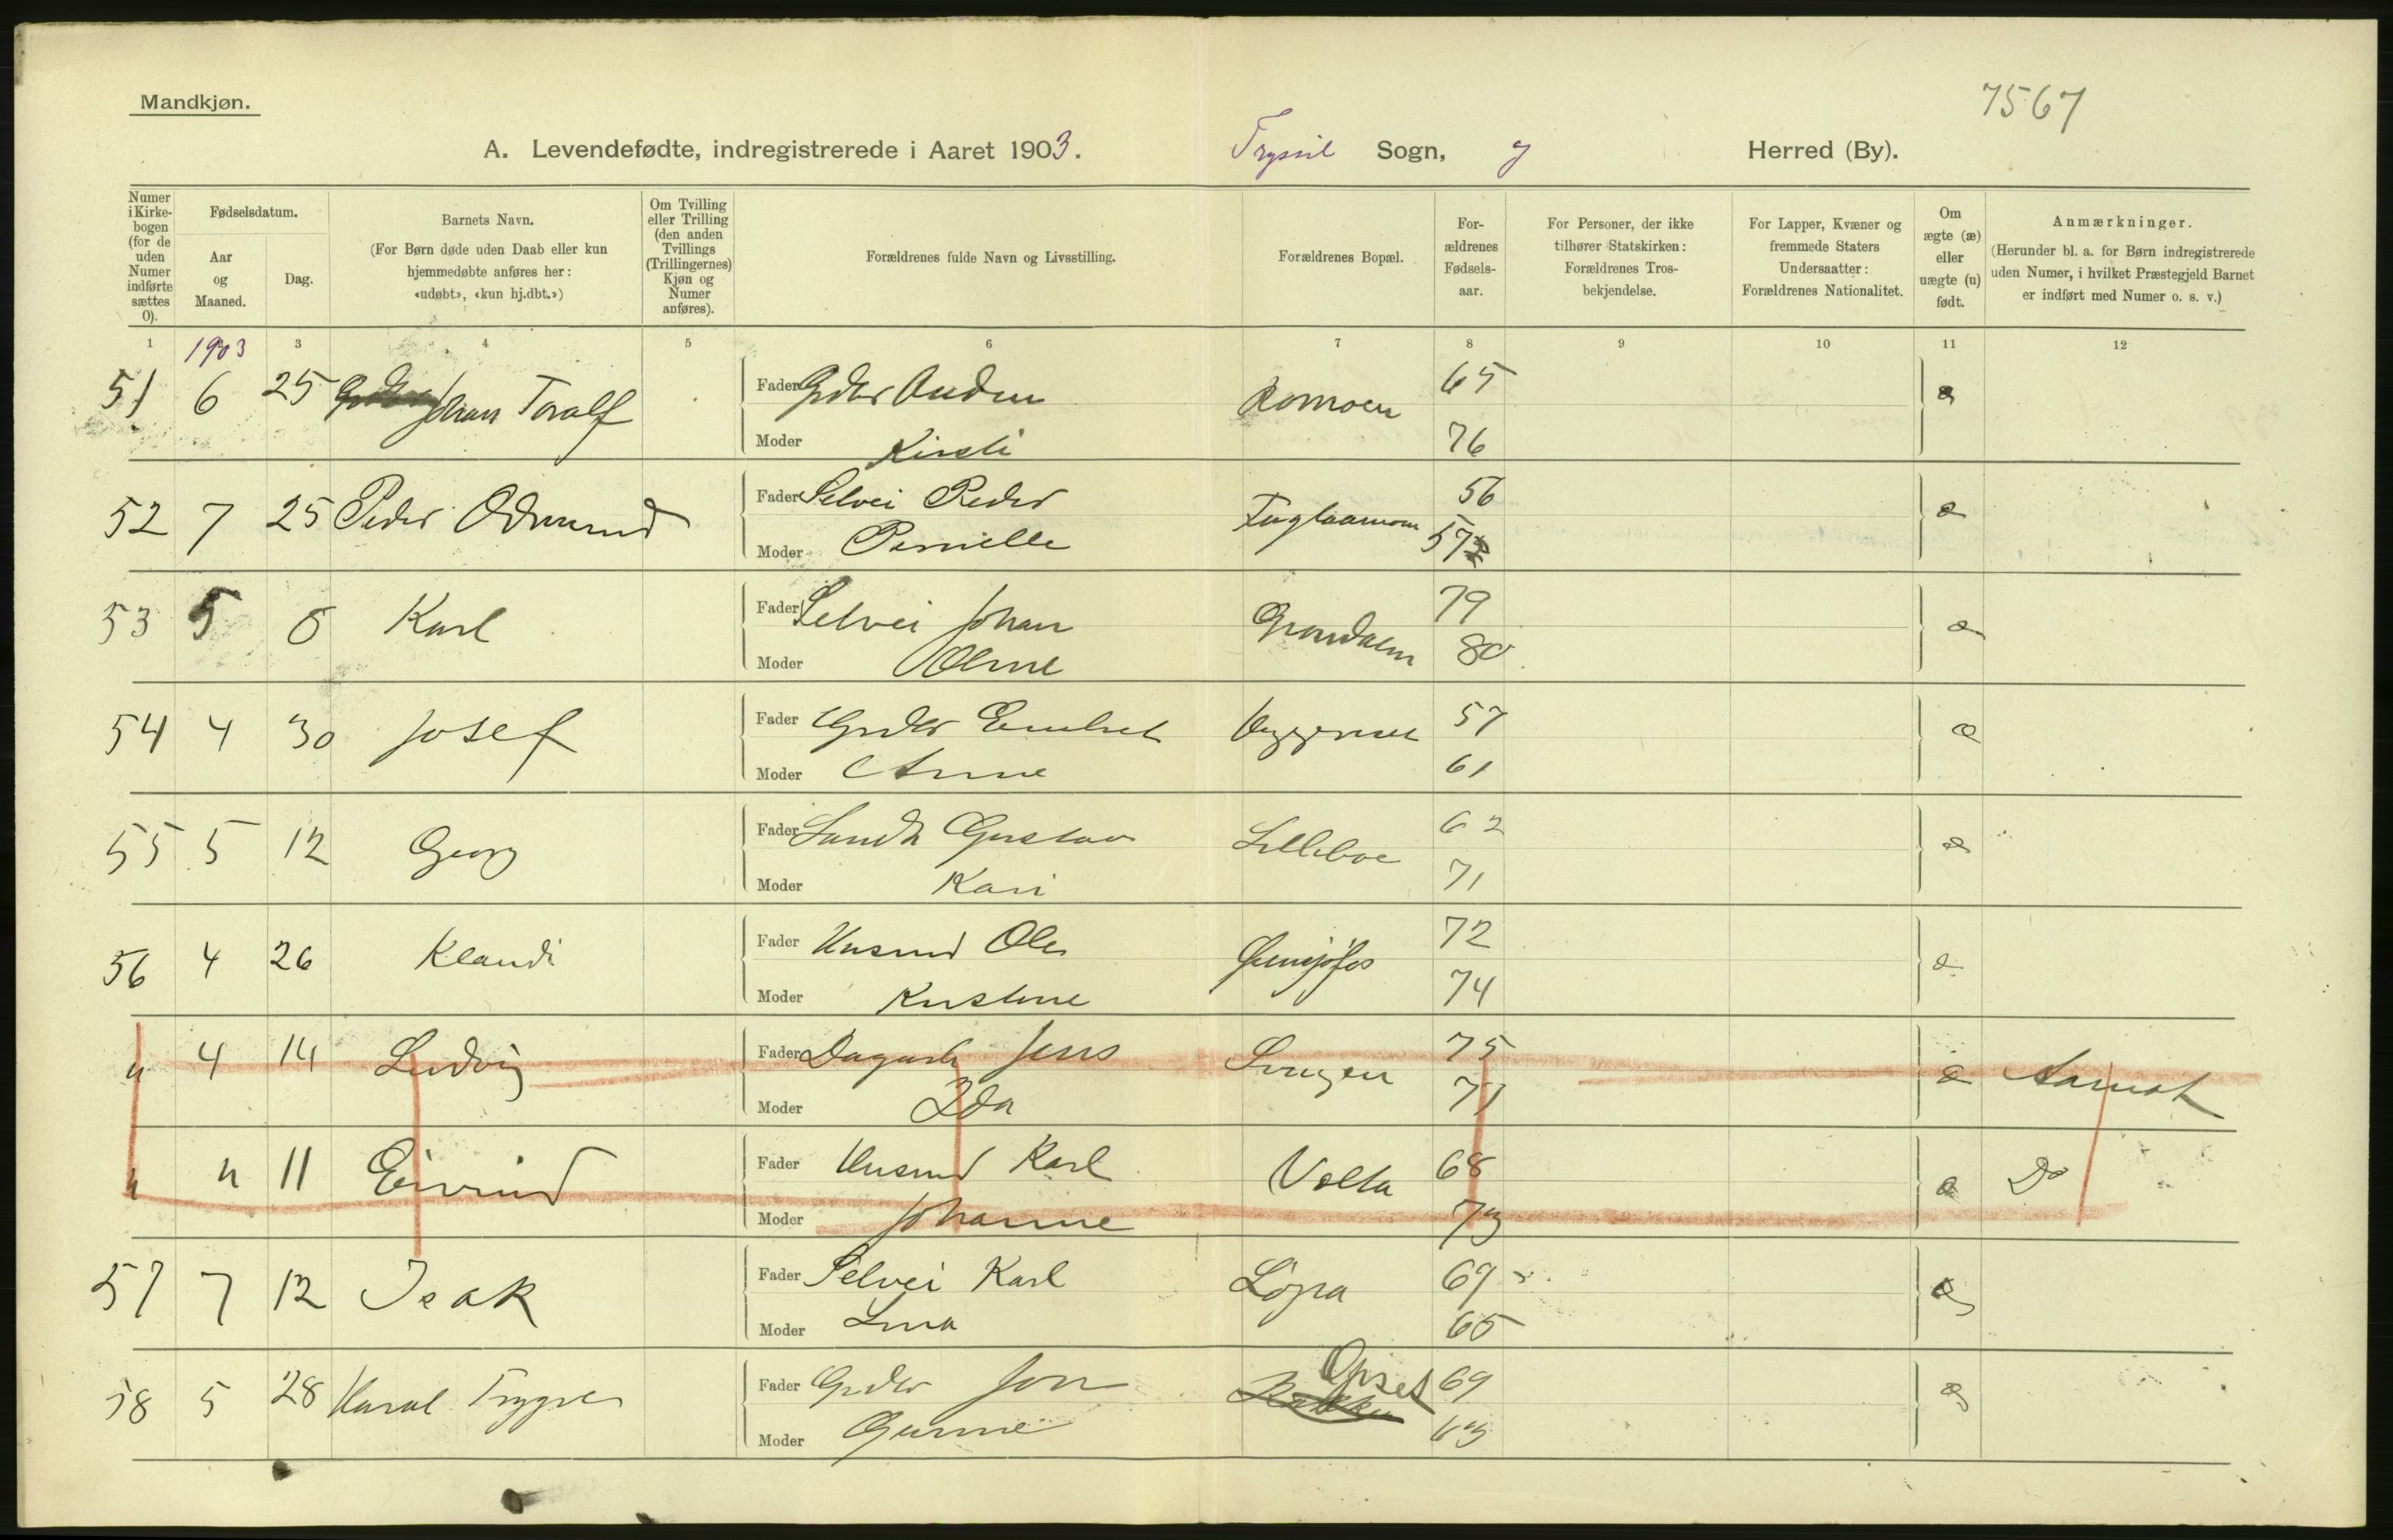 7567
Mandkjøn.
A. Levendefødte, indregistrerede i Aaret 1903. Trysil Sogn, Herred (By).
Numer i Kirkebogen (for de uden Numer indførte sættes 0).
Fødselsdatum.
Aar og Maaned.
Dag.
Barnets Navn.
(For Børn døde uden Daab eller kun hjemmedøbte anføres her: «udøbt», «kun hj.dbt.»)
Om Tvilling eller Trilling (den anden Tvillings (Trillingernes) Kjøn og Numer anføres).
Forældrenes fulde Navn og Livsstilling.
Forældrenes Bopæl.
Forældrenes Fødselsaar.
For Personer, der ikke tilhører Statskirken: Forældrenes Trosbekjendelse.
For Lapper, Kvæner og fremmede Staters Undersaatter: Forældrenes Nationalitet.
Om ægte (æ) eller uægte (u) født.
Anmærkninger.
(Herunder bl. a. for Børn indregistrerede uden Numer, i hvilket Præstegjeld Barnet er indført med Numer o. s. v.)
1 1903 3 4 5 6 7 8 9 10 11 12
51 6 25 Johan Toralf Fader Gdbr Romoen 65 æ
Moder Kirsti 76
52 7 25 Peder Odmund Fader Selvei Peder 56 æ
Moder Pernille 57
53 5 5 Karl Fader Selvei Johan Grøndalen 79 æ
Moder Oline 80
54 4 30 Josef Fader Gdbr Embret 57 æ
Moder Anne 61
55 5 12 Georg Fader Gustav Lillebo 62 æ
Moder Kari 71
56 4 26 Klaudi Fader Husmd Ole 72 æ
Moder Kristine 74
" 4 14 Ludvig Fader Dagarb Jens 75 æ Aamot
Moder Ida 71
" " 11 Eivind Fader Husmd Karl Volla 68 æ Do
Moder Johanne 73
57 7 12 Isak Fader Selvei Karl Løpa 67 æ
Moder Lina 65
58 5 28 Haral Trygve Fader Gdbr Jon Opset 69 æ
Moder Gunne 63